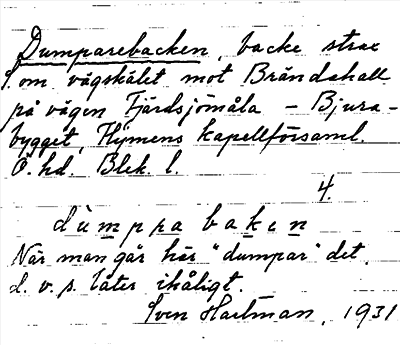 Dumparebacken, backe strax
S. om vägskälet mot Brändahall
på vägen Fjärdsjömåla - Bjura-
bygget, Flymens kapellförsaml.
Ö. hd. Blek. l.
4.
dùmppa baken
När man går här "dumpar" det,
d. v. s. låter ihåligt.
Sven Hartman, 1931